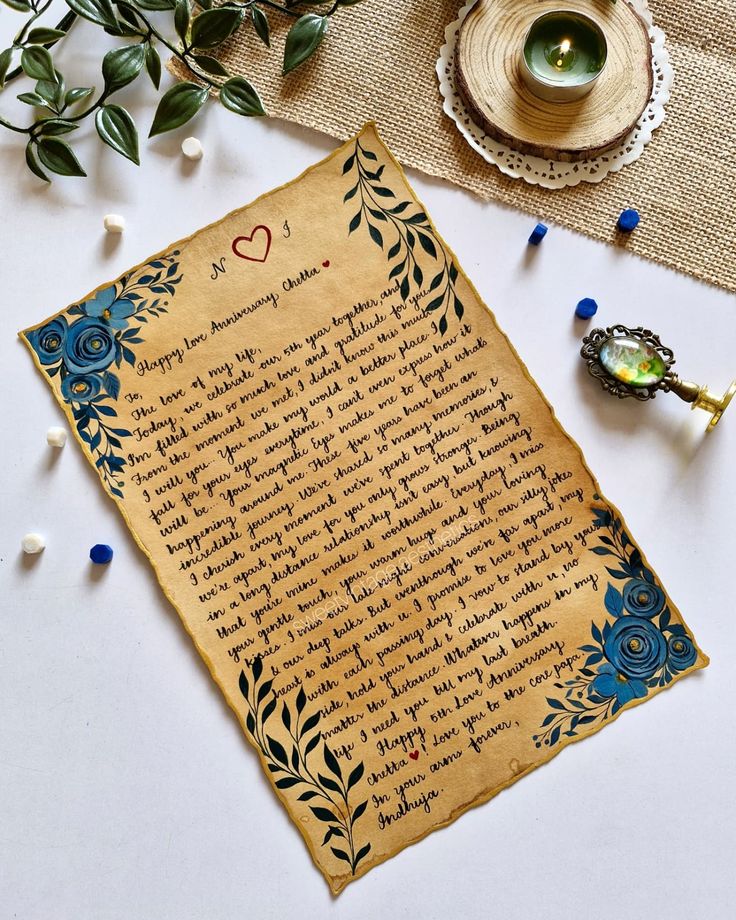 N ❤ I
Happy Love Anniversary Chetta ❤
To,
The love of my life,
Today, we celebrate our 5th year together, and
I'm filled with so much love and gratitude for you.
From the moment we met, I didn't know this much
I will you. You make my would a better place. I
fall for your eyes everytime, I can't even express how it
will be. Your magnetic Eyes makes me to forget what's
happening around me. These five years have been an
incredible journey. We've shared so many memories &
I cherish every moment we've spent together. Though
we're apart, my love for you only grows stronger. Being
in a long distance relationship isn't easy, but knowing
that you're mine makes it worthwhile. Everyday, I miss
your gentle touch, your warm hug and your loving
kisses. I miss our late night conversations, our silly jokes
& our deep talks. But eventhough we're far apart, my
heart is always with u. I promise to love you more
with each passing day. I vow to stand by your
side, hold your hand & celebrate with u, no
matter the distance. Whatever happens in my
life I need you till my last breath.
Happy 5th Love Anniversary
chetta ❤! Love you to the core papa.
In your arms forever,
Indhuja.
sweetvintageaesthetics